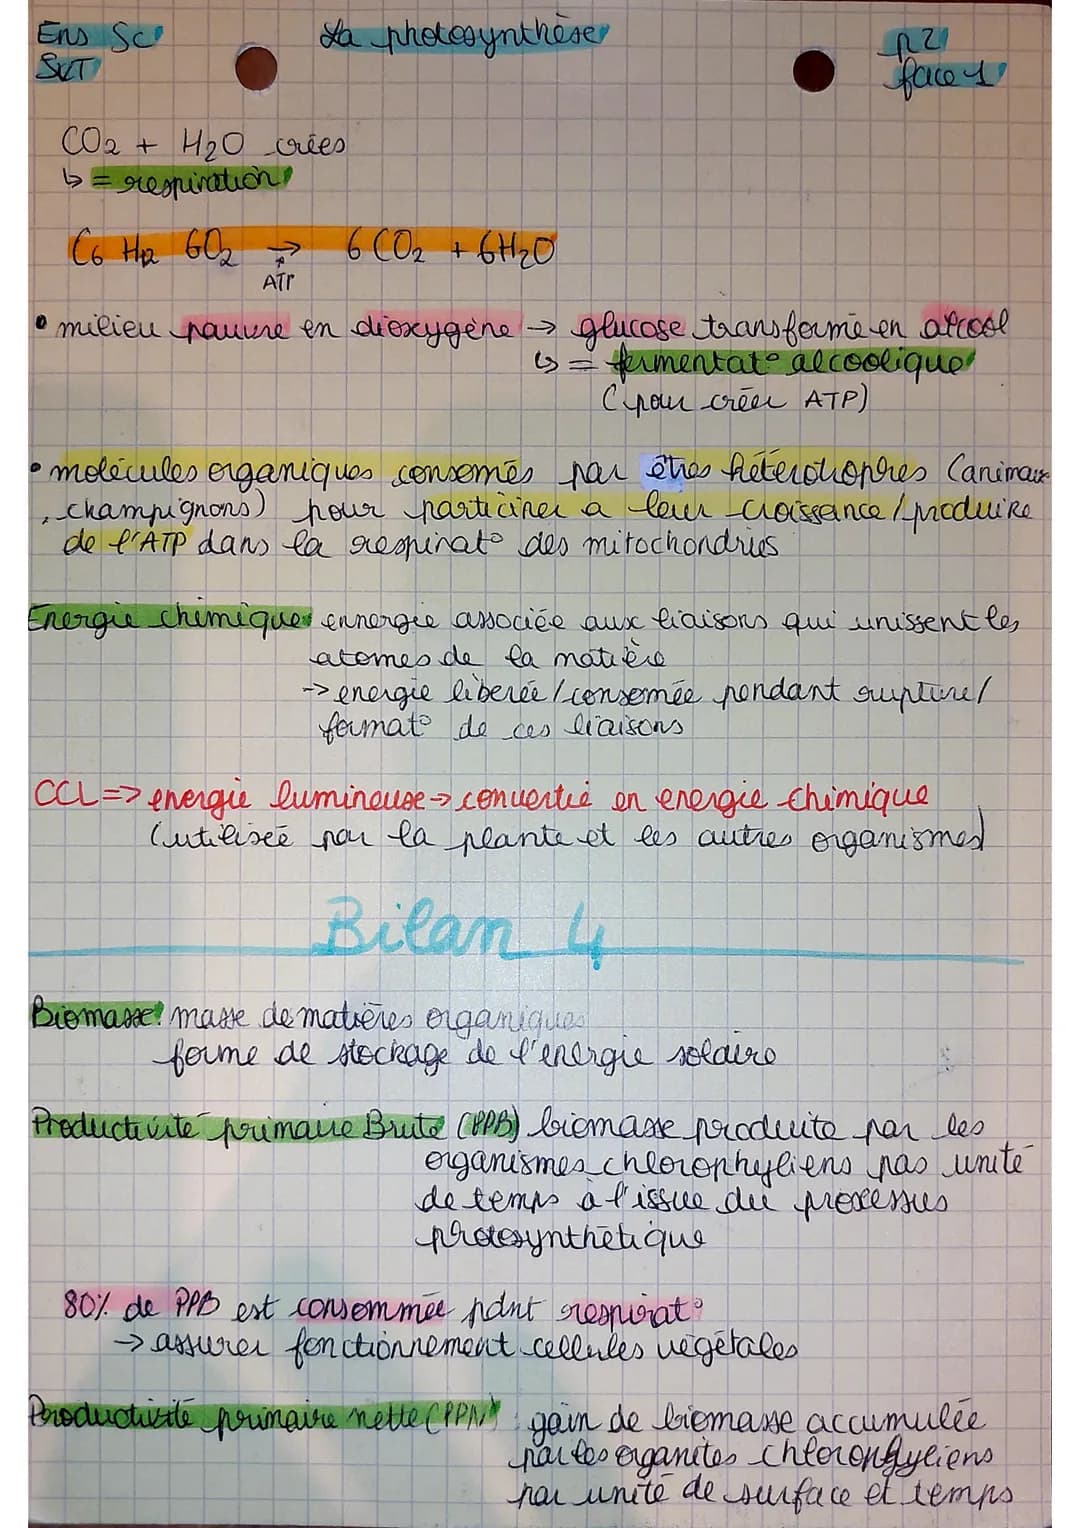 Ens Sc
SVT
La photosynthèse
p2
face 1
CO2 + H2O crées
↳ = respiration
C6 H12 6O2 → 6 CO2 + 6H2O
ATP
• milieu pauvre en dioxygène → glucose transformé en alcool
↳ = fermentat° alcoolique
(pour créer ATP)
• molécules organiques consomés par êtres hétérotrophes (animaux
, champignons) pour participer a leur croissance / produire
de l'ATP dans la respirat° des mitochondries
Energie chimique ennergie associée aux liaisons qui unissent les
atomes de la matière
-> energie liberée / consomée pendant rupture /
format° de ces liaisons
CCL => energie lumineuse -> convertie en energie chimique
(utilisée par la plante et les autres organismes)
Bilan 4
Biomasse: masse de matières organiques
forme de stockage de l'énergie solaire
Productivité primaire Brute (PPB) biomasse produite par les
organismes chlorophyliens pas unité
de temps à l'issue du processus
photosynthétique
80% de PPB est consommée pdnt respirat°
-> assurer fonctionnement cellules végétales
Productivité primaire nette (PPN) gain de biomasse accumulée
par les organites chlorophyliens
par unité de surface et temps